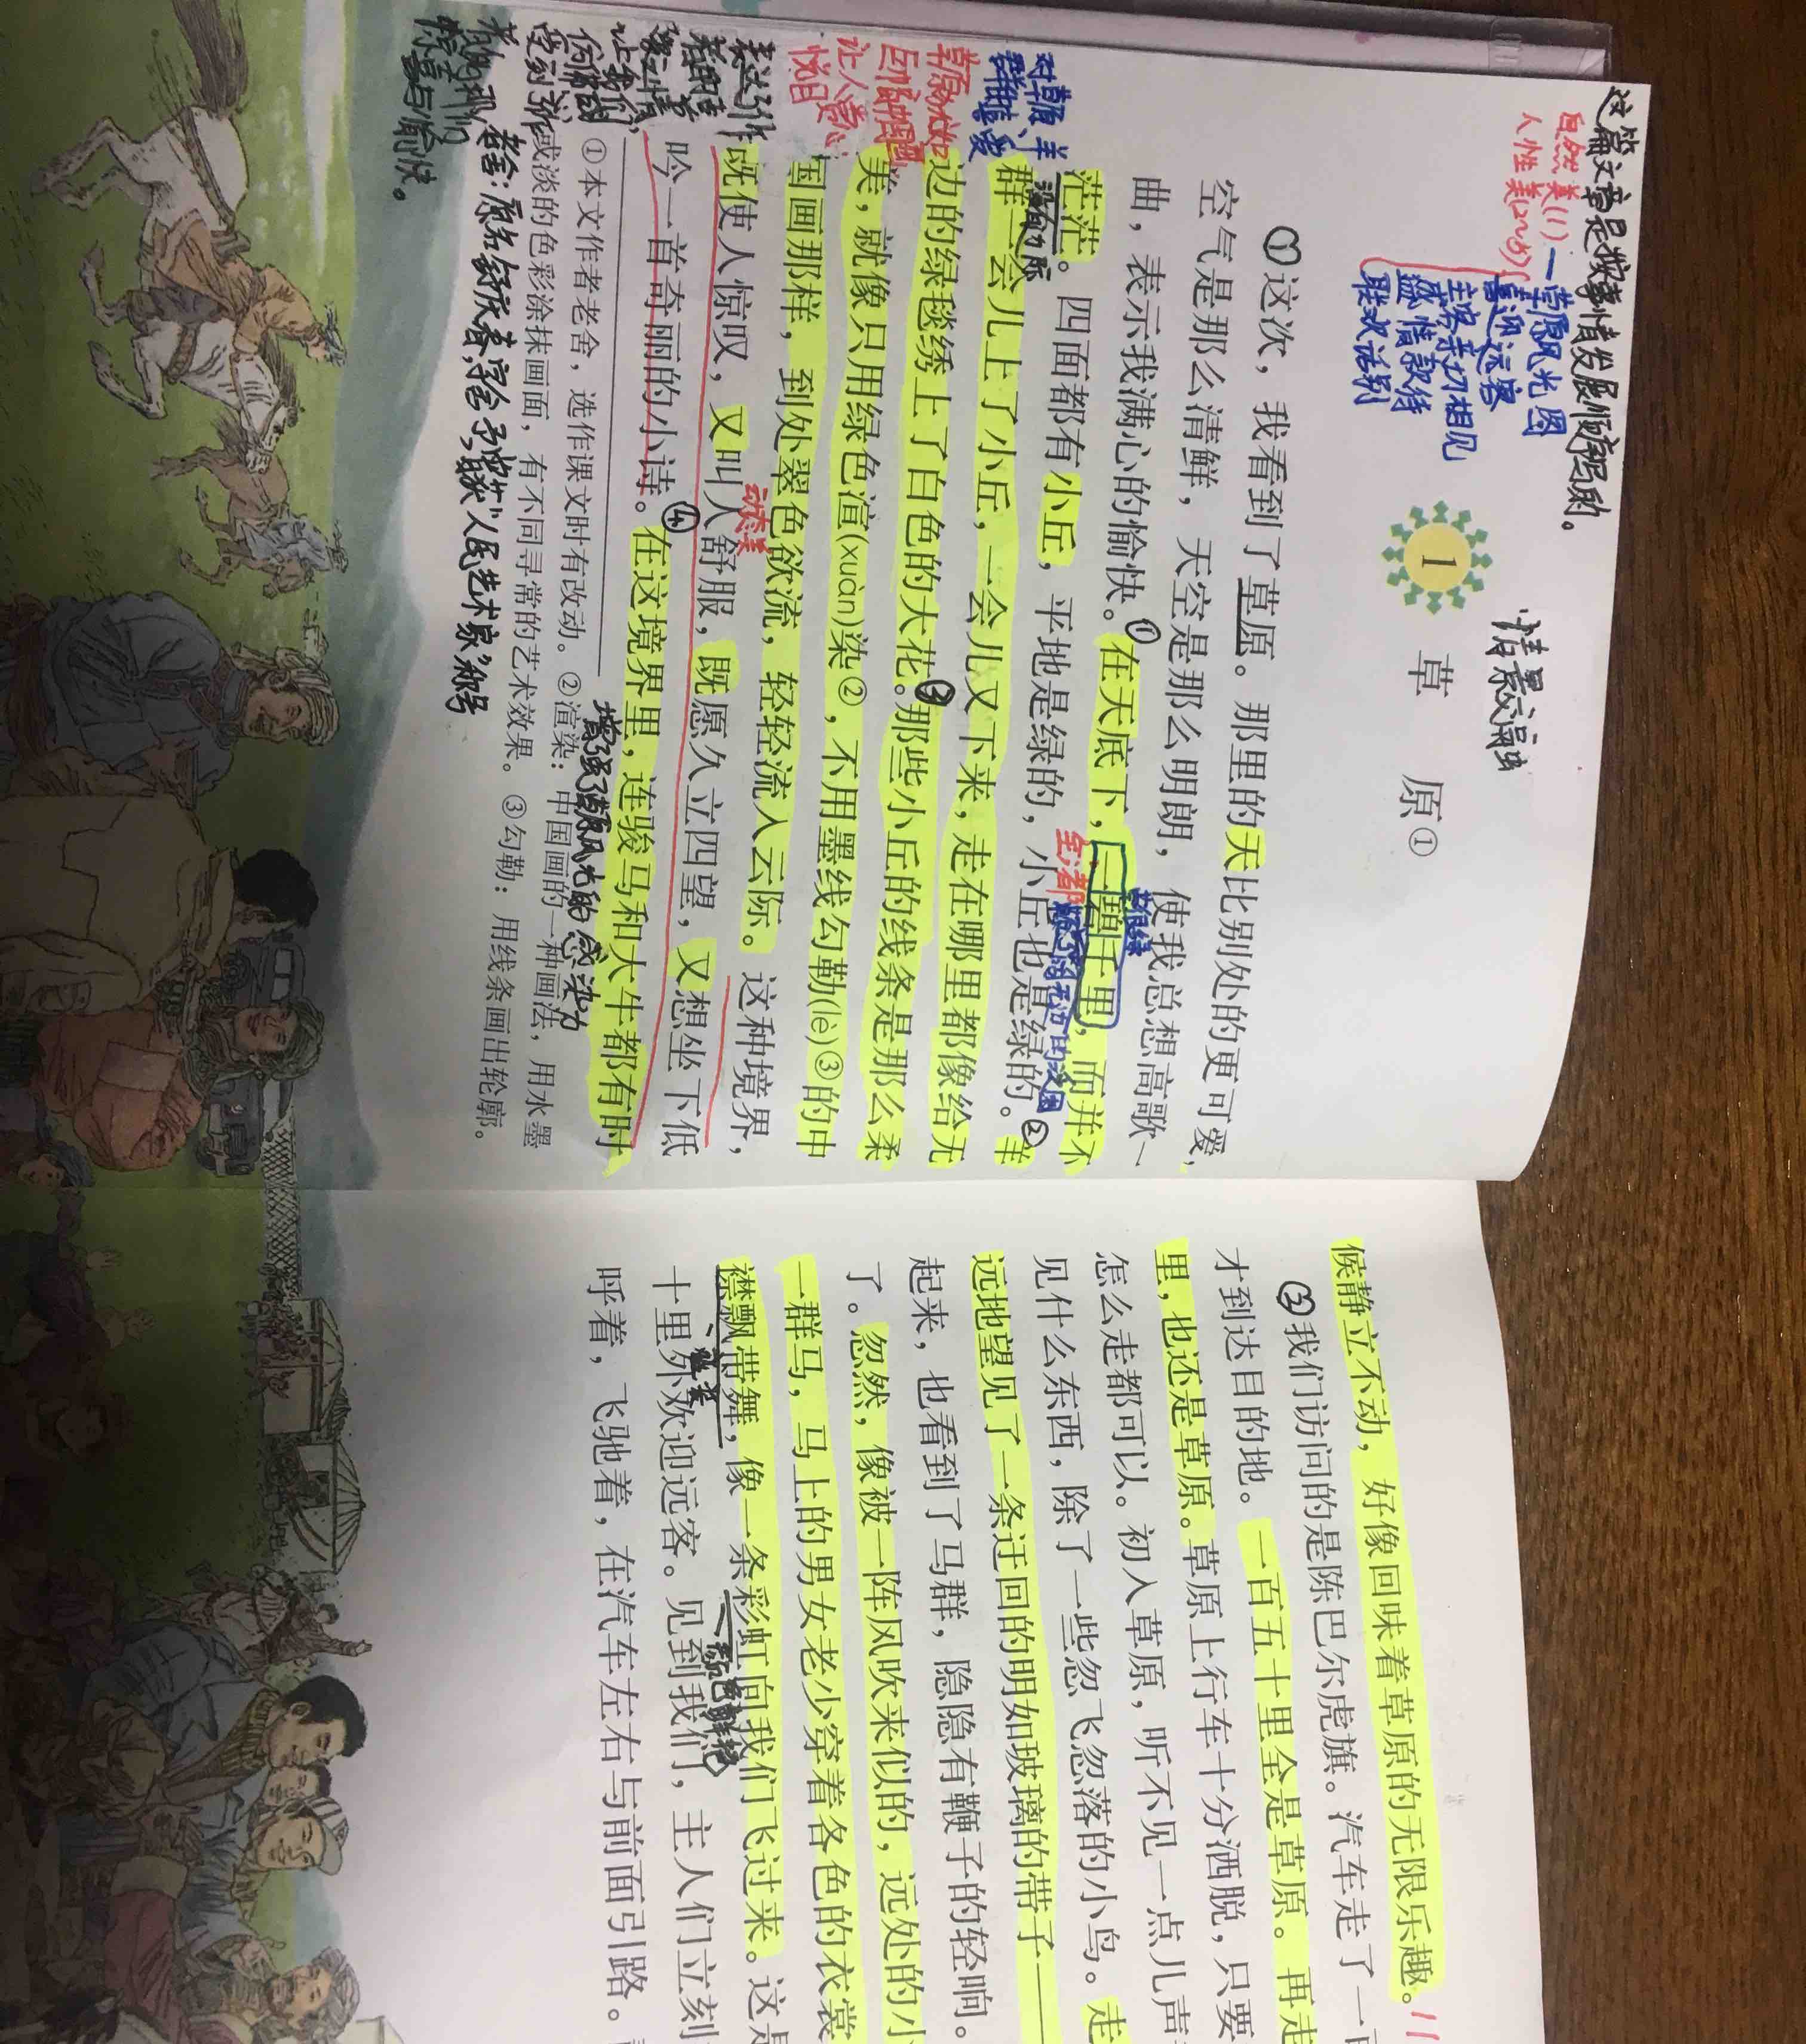 这篇文章是按事情发展顺序写的。
自然美(1)—草原风光图
人性美(2~5)
喜迎远客
主客亲切相见
盛情款待
联欢话别
情景交融
1 草 原①
①这次，我看到了草原。那里的天比别处的更可爱，
空气是那么清鲜，天空是那么明朗，使我总想高歌一
曲，表示我满心的愉快。①在天底下，一碧千里，而并不
茫茫。四面都有小丘，平地是绿的，小丘也是绿的。②羊
群一会儿上了小丘，一会儿又下来，走在哪里都像给无
边的绿毯绣上了白色的大花。③那些小丘的线条是那么柔
美，就像只用绿色渲(xuàn)染②，不用墨线勾勒(le)③的中
国画那样，到处翠色欲流，轻轻流入云际。这种境界，
既使人惊叹，又叫人舒服，既愿久立四望，又想坐下低
吟一首奇丽的小诗。④在这境界里，连骏马和大牛都有时
对草原、羊
群的喜爱
让人赏心
悦目
表达了作
动态美
增强了草原风光的感染力
惊喜与愉快。
①本文作者老舍，选作课文时有改动。②渲染：中国画的一种画法，用水墨
或淡的色彩涂抹画面，有不同寻常的艺术效果。③勾勒：用线条画出轮廓。
老舍：原名舒庆春，字舍予，获“人民艺术家”称号
候静立不动，好像回味着草原的无限乐趣。
②我们访问的是陈巴尔虎旗。汽车走了一
才到达目的地。一百五十里全是草原。再走
里，也还是草原。草原上行车十分洒脱，只要
怎么走都可以。初入草原，听不见一点儿声
见什么东西，除了一些忽飞忽落的小鸟。走
远地望见了一条迂回的明如玻璃的带子——
起来，也看到了马群，隐隐有鞭子的轻响。
了。忽然，像被一阵风吹来似的，远处的小
一群马，马上的男女老少穿着各色的衣裳
襟飘带舞，像一条彩虹向我们飞过来。这是
十里外欢迎远客。见到我们，主人们立刻
呼着，飞驰着，在汽车左右与前面引路。
颜色鲜艳